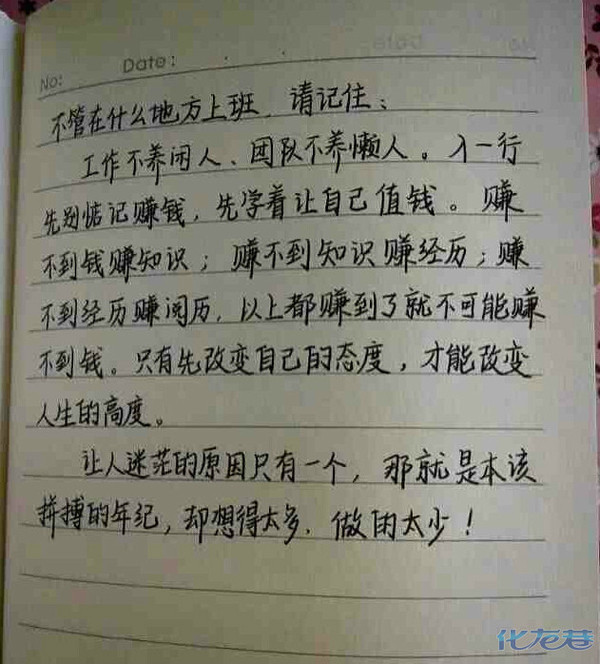 No:
Date:
不管在什么地方上班,请记住:
工作不养闲人、团队不养懒人。入一行
先别惦记赚钱,先学着让自己值钱。赚
不到钱赚知识;赚不到知识赚经历;赚
不到经历赚阅历,以上都赚到了就不可能赚
不到钱。只有先改变自己的态度,才能改变
人生的高度。
让人迷茫的原因只有一个,那就是本该
拼搏的年纪,却想得太多.做的太少!
化龙巷